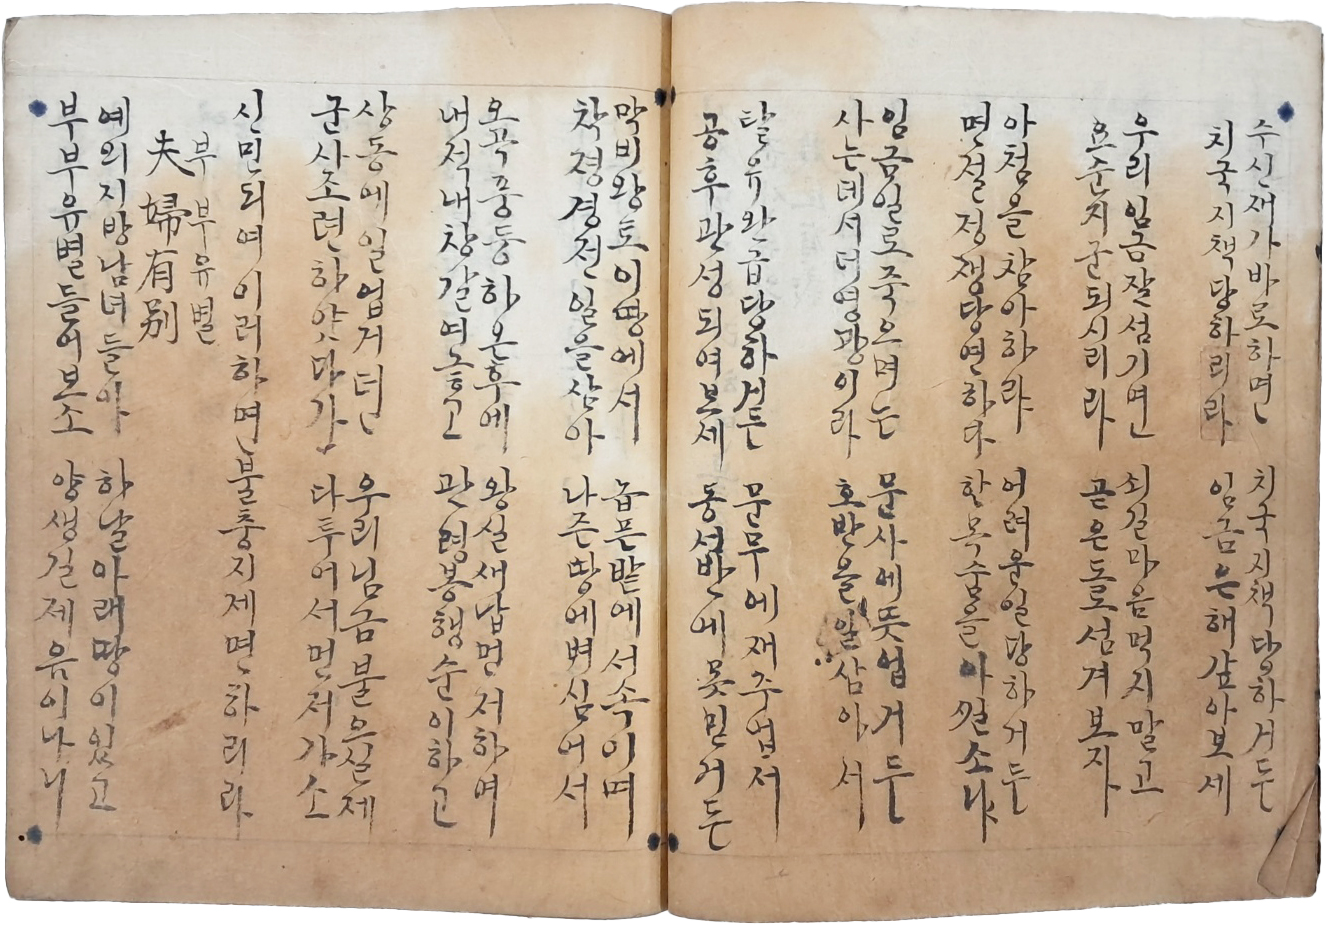 수신재가바로하면
치국지책당하리라
치국지책당하거든
임금은해갚아보세
우리임금잘섬기면
요순지군되시리라
쇠길마음먹지말고
곧은도로섬겨보자
아첨을참아하랴
면절정쟁당연하다
어려울일당하거든
한목숨을아낀소냐
임금일로죽으며는
사는데서더영광이라
문사에뜻업거든
호반을일삼아서
탈유와급당하거든
공후관성되여보세
문무에재주업서
동서반에못민거든
막비왕토이땅에서
착졍경전일을삼아
높픈밭에서속이며
나즌땅에벼심어서
오곡풍등하온후에
내적내창갈여놓고
왕실새납먼저하며
관령봉행순이하고
상동에일업거던
군사조련하얏다가
우리님금불으실제
다투어서먼저가소
신민되여이러하면불충지제면하리라
부부유별
夫婦有别
예외지방남녀들아
부부유별들어보소
하날아래땅이있고
양생길제음이나니